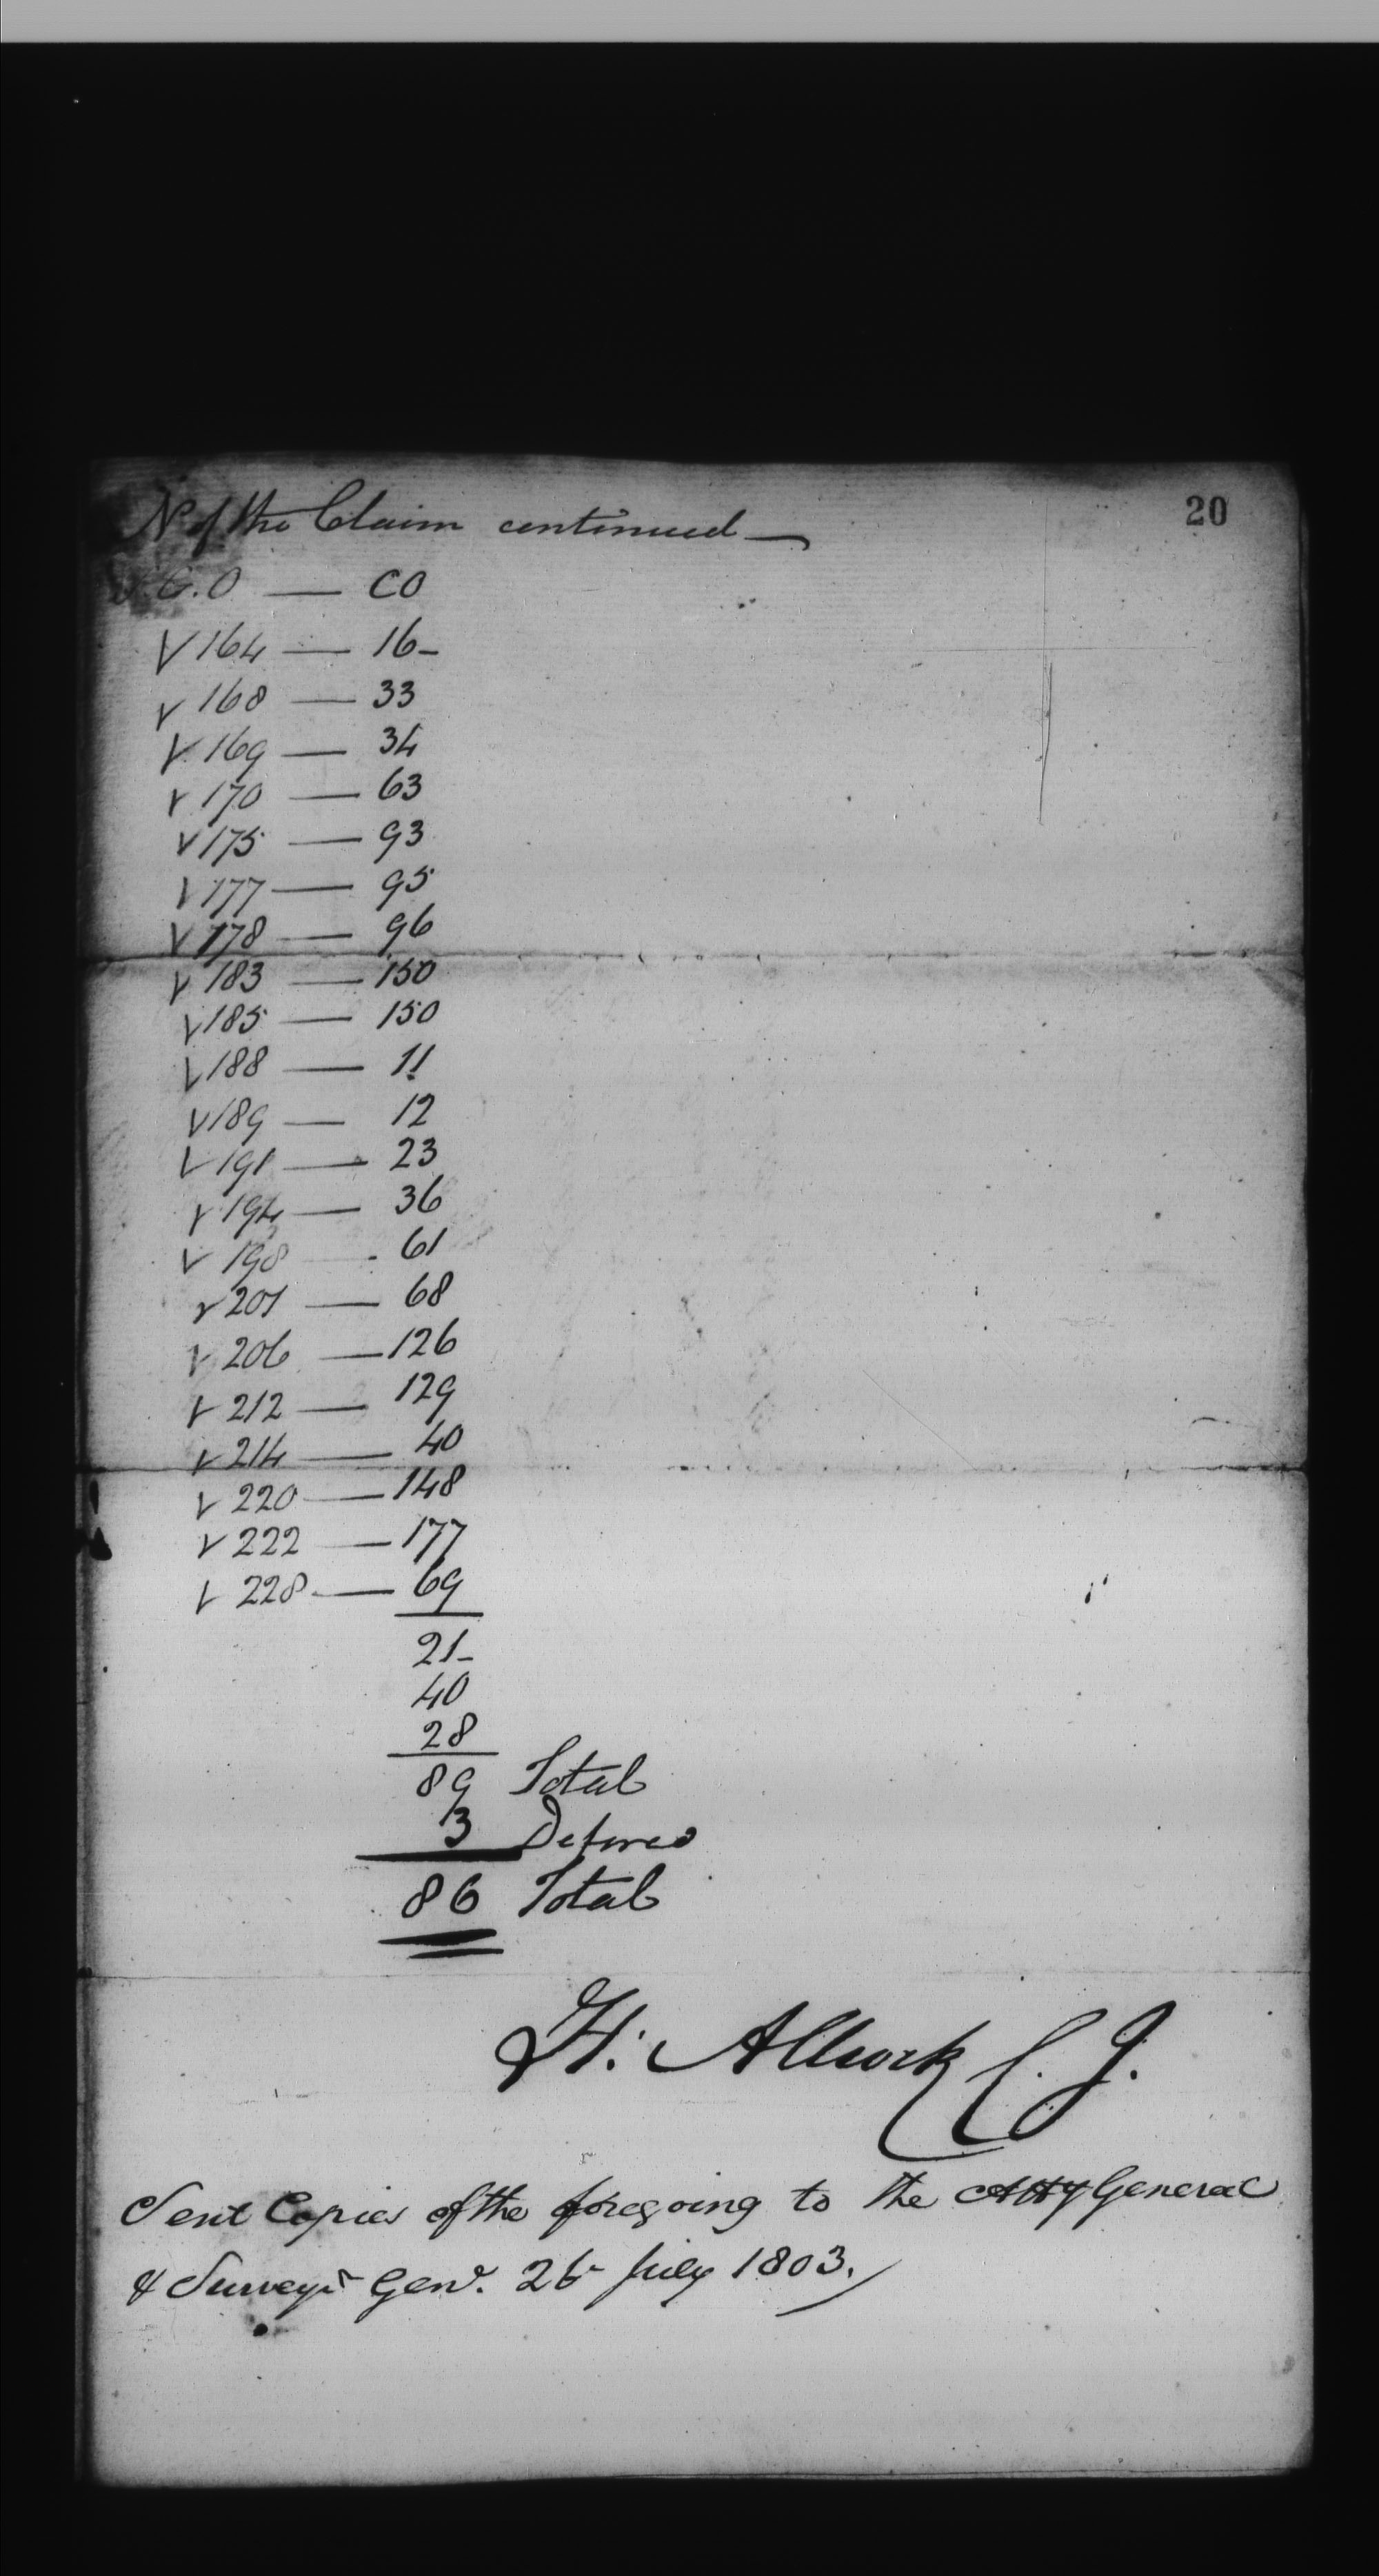 20
No of the Claim continued
A.G.O — CO
V 164 — 16-
V 168 — 33
V 169 — 34
V 170 — 63
V 175 — 93
V 177 — 95
V 178 — 96
V 183 — 150
V 185 — 150
V 188 — 11
V 189 — 12
V 191 — 23
V 194 — 36
V 198 — 61
V 201 — 68
V 206 — 126
V 212 — 129
V 214 — 40
V 220 — 148
V 222 — 177
V 228 — 69
21-
40
28
89 Total
3
86 Total
H. Allcock C. J.
Sent Copies of the foregoing to the Atty General
& Surveyr Genl. 26 July 1803.